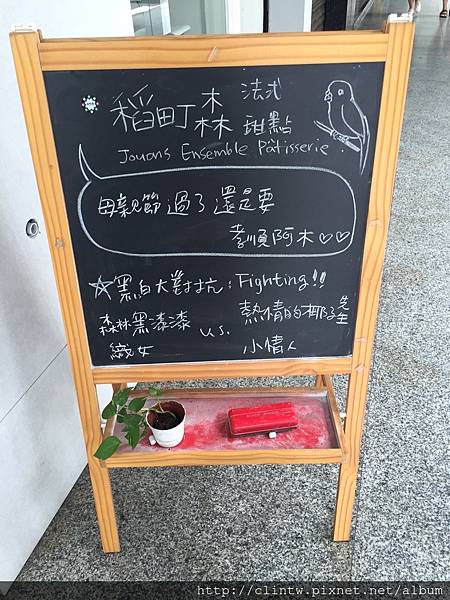 稻町森 法式甜點
Jouons Ensemble Pâtisserie
母親節過了還是要
孝順阿木♡♡
☆黑白大對抗：Fighting!!
森林黑漆漆 v.s. 熱情的椰子先生
織女 小情人
http://clintw.pixnet.net/album